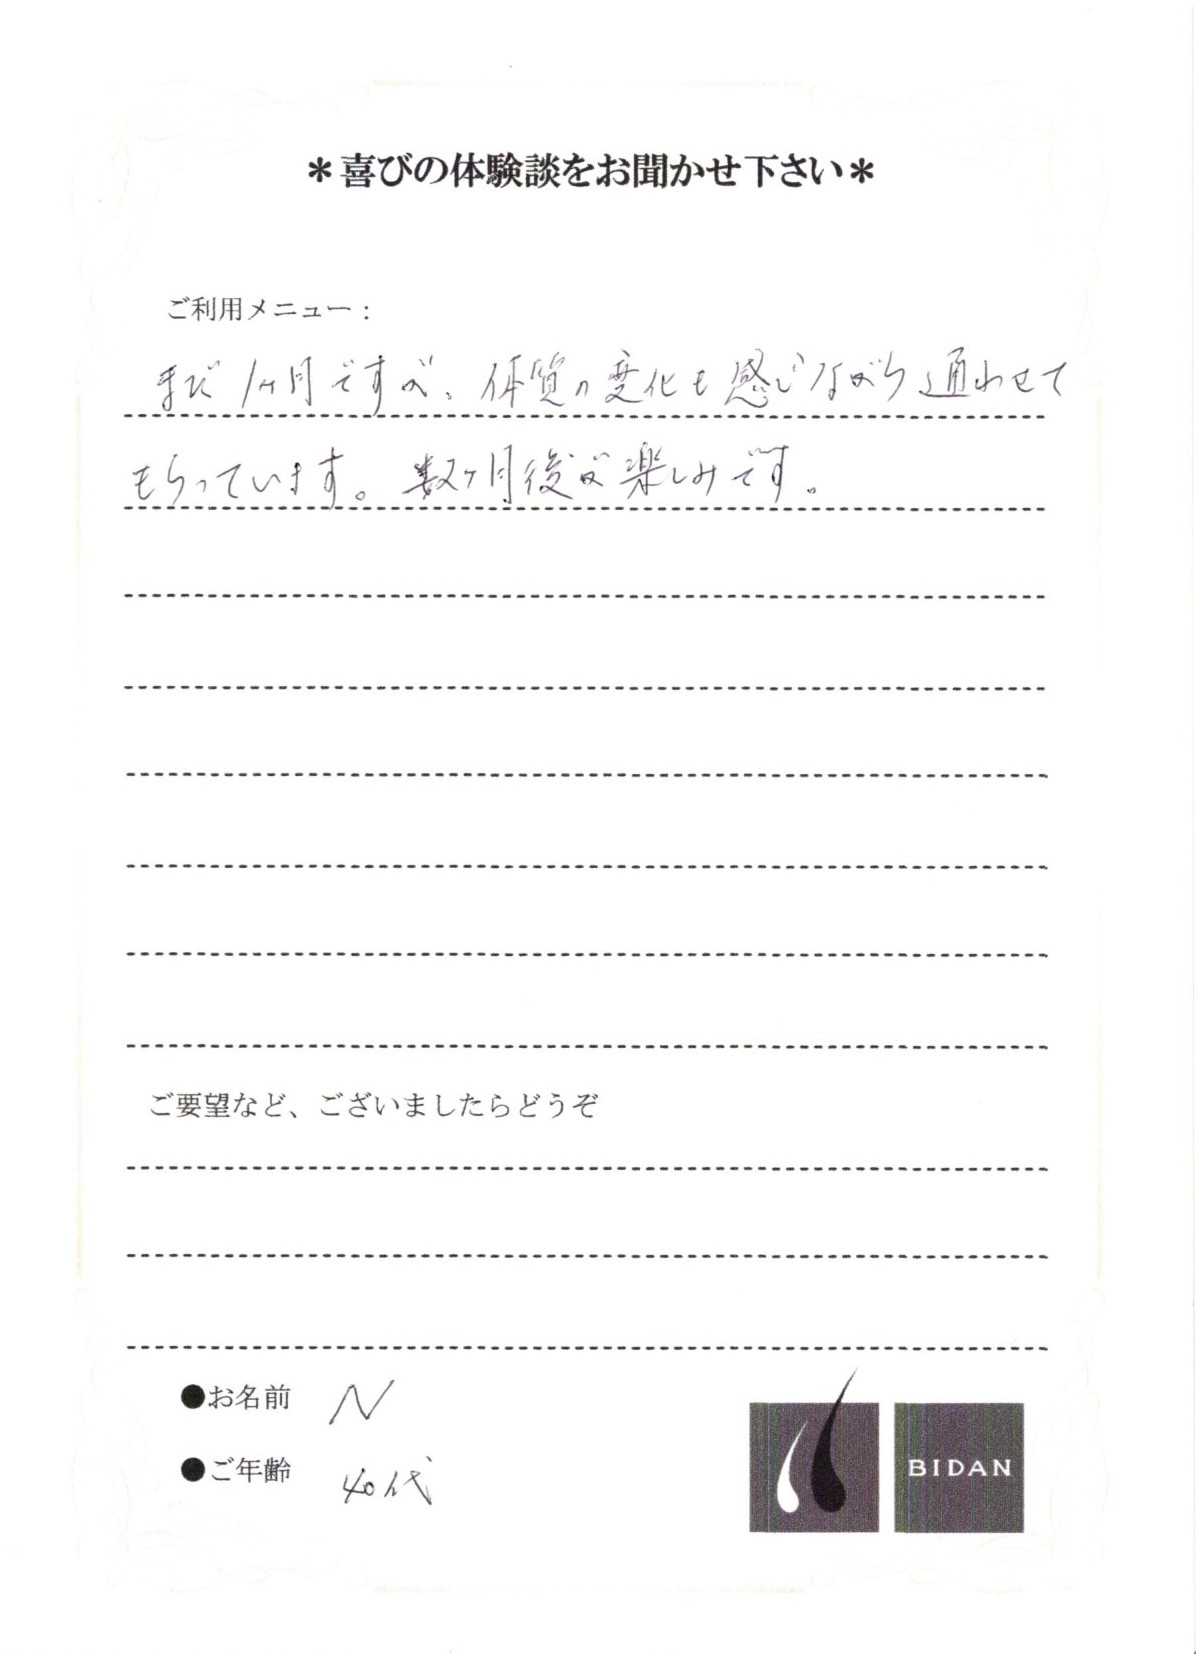 ＊喜びの体験談をお聞かせ下さい＊
ご利用メニュー：
まだ1ヶ月ですが、体質の変化も感じながら通わせて
もらっています。数ヶ月後が楽しみです。
ご要望など、ございましたらどうぞ
●お名前 N
●ご年齢 40代
BIDAN